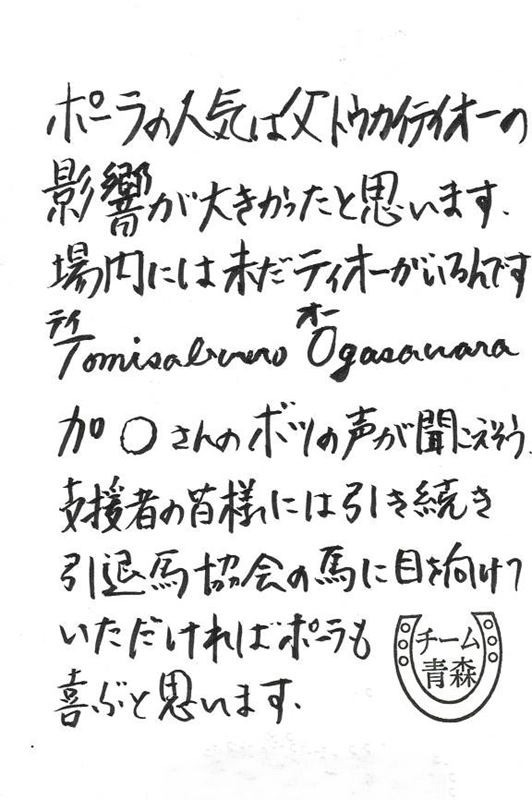 ポニーラの人気は父トウカイテイオーの
影響が大きかったと思います、
場内には未だティオーがいるんです
テイ オー
Tomisaburo Ogasawara
加〇さんのボツの声が聞こえそう、
支援者の皆様には引き続き
引退馬協会の馬に目を向けて
いただければポニーラも
喜ぶと思います、
チーム
青森